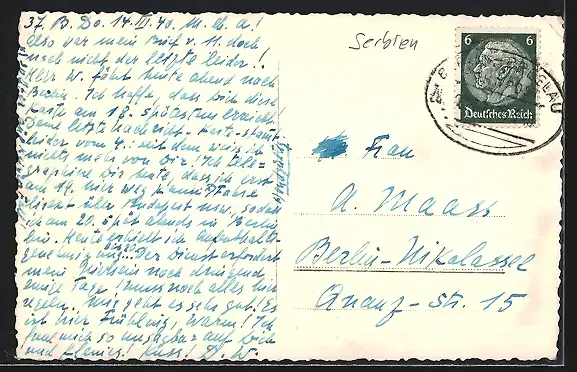 37. B. Do. 14. III. 40. M. l. a!
also war mein Brief v. 11. doch
noch nicht der letzte leider!!
Herr W. fährt heute abend nach
Berlin. Ich hoffe dass dich diese
Karte am 18. spätestens erreicht!
Deine letzte Nachricht - Karte - stammt
leider vom 4.: seit dem weiss ich
nichts mehr von Dir! Ich tele-
graphiere Dir heute, dass ich erst
am 19. hier weg kann! Fahre
direkt über Budapest usw., sodass
ich am 20. spät abends in Berlin
bin. Heute erhielt ich Aufenthalts-
genehmigung Der Dienst erfordert
mein Hiersein noch dringend
einige Tage! muss noch alles hier
regeln. Mir geht es sehr gut! Es
ist hier Frühling, warm! Ich
freue mich so auf Dich
und Kleines! Kuss! D. W.
Serbien
6 6
Deutsches Reich
Frau
A. Maass
Berlin-Nikolassee
Str. 15